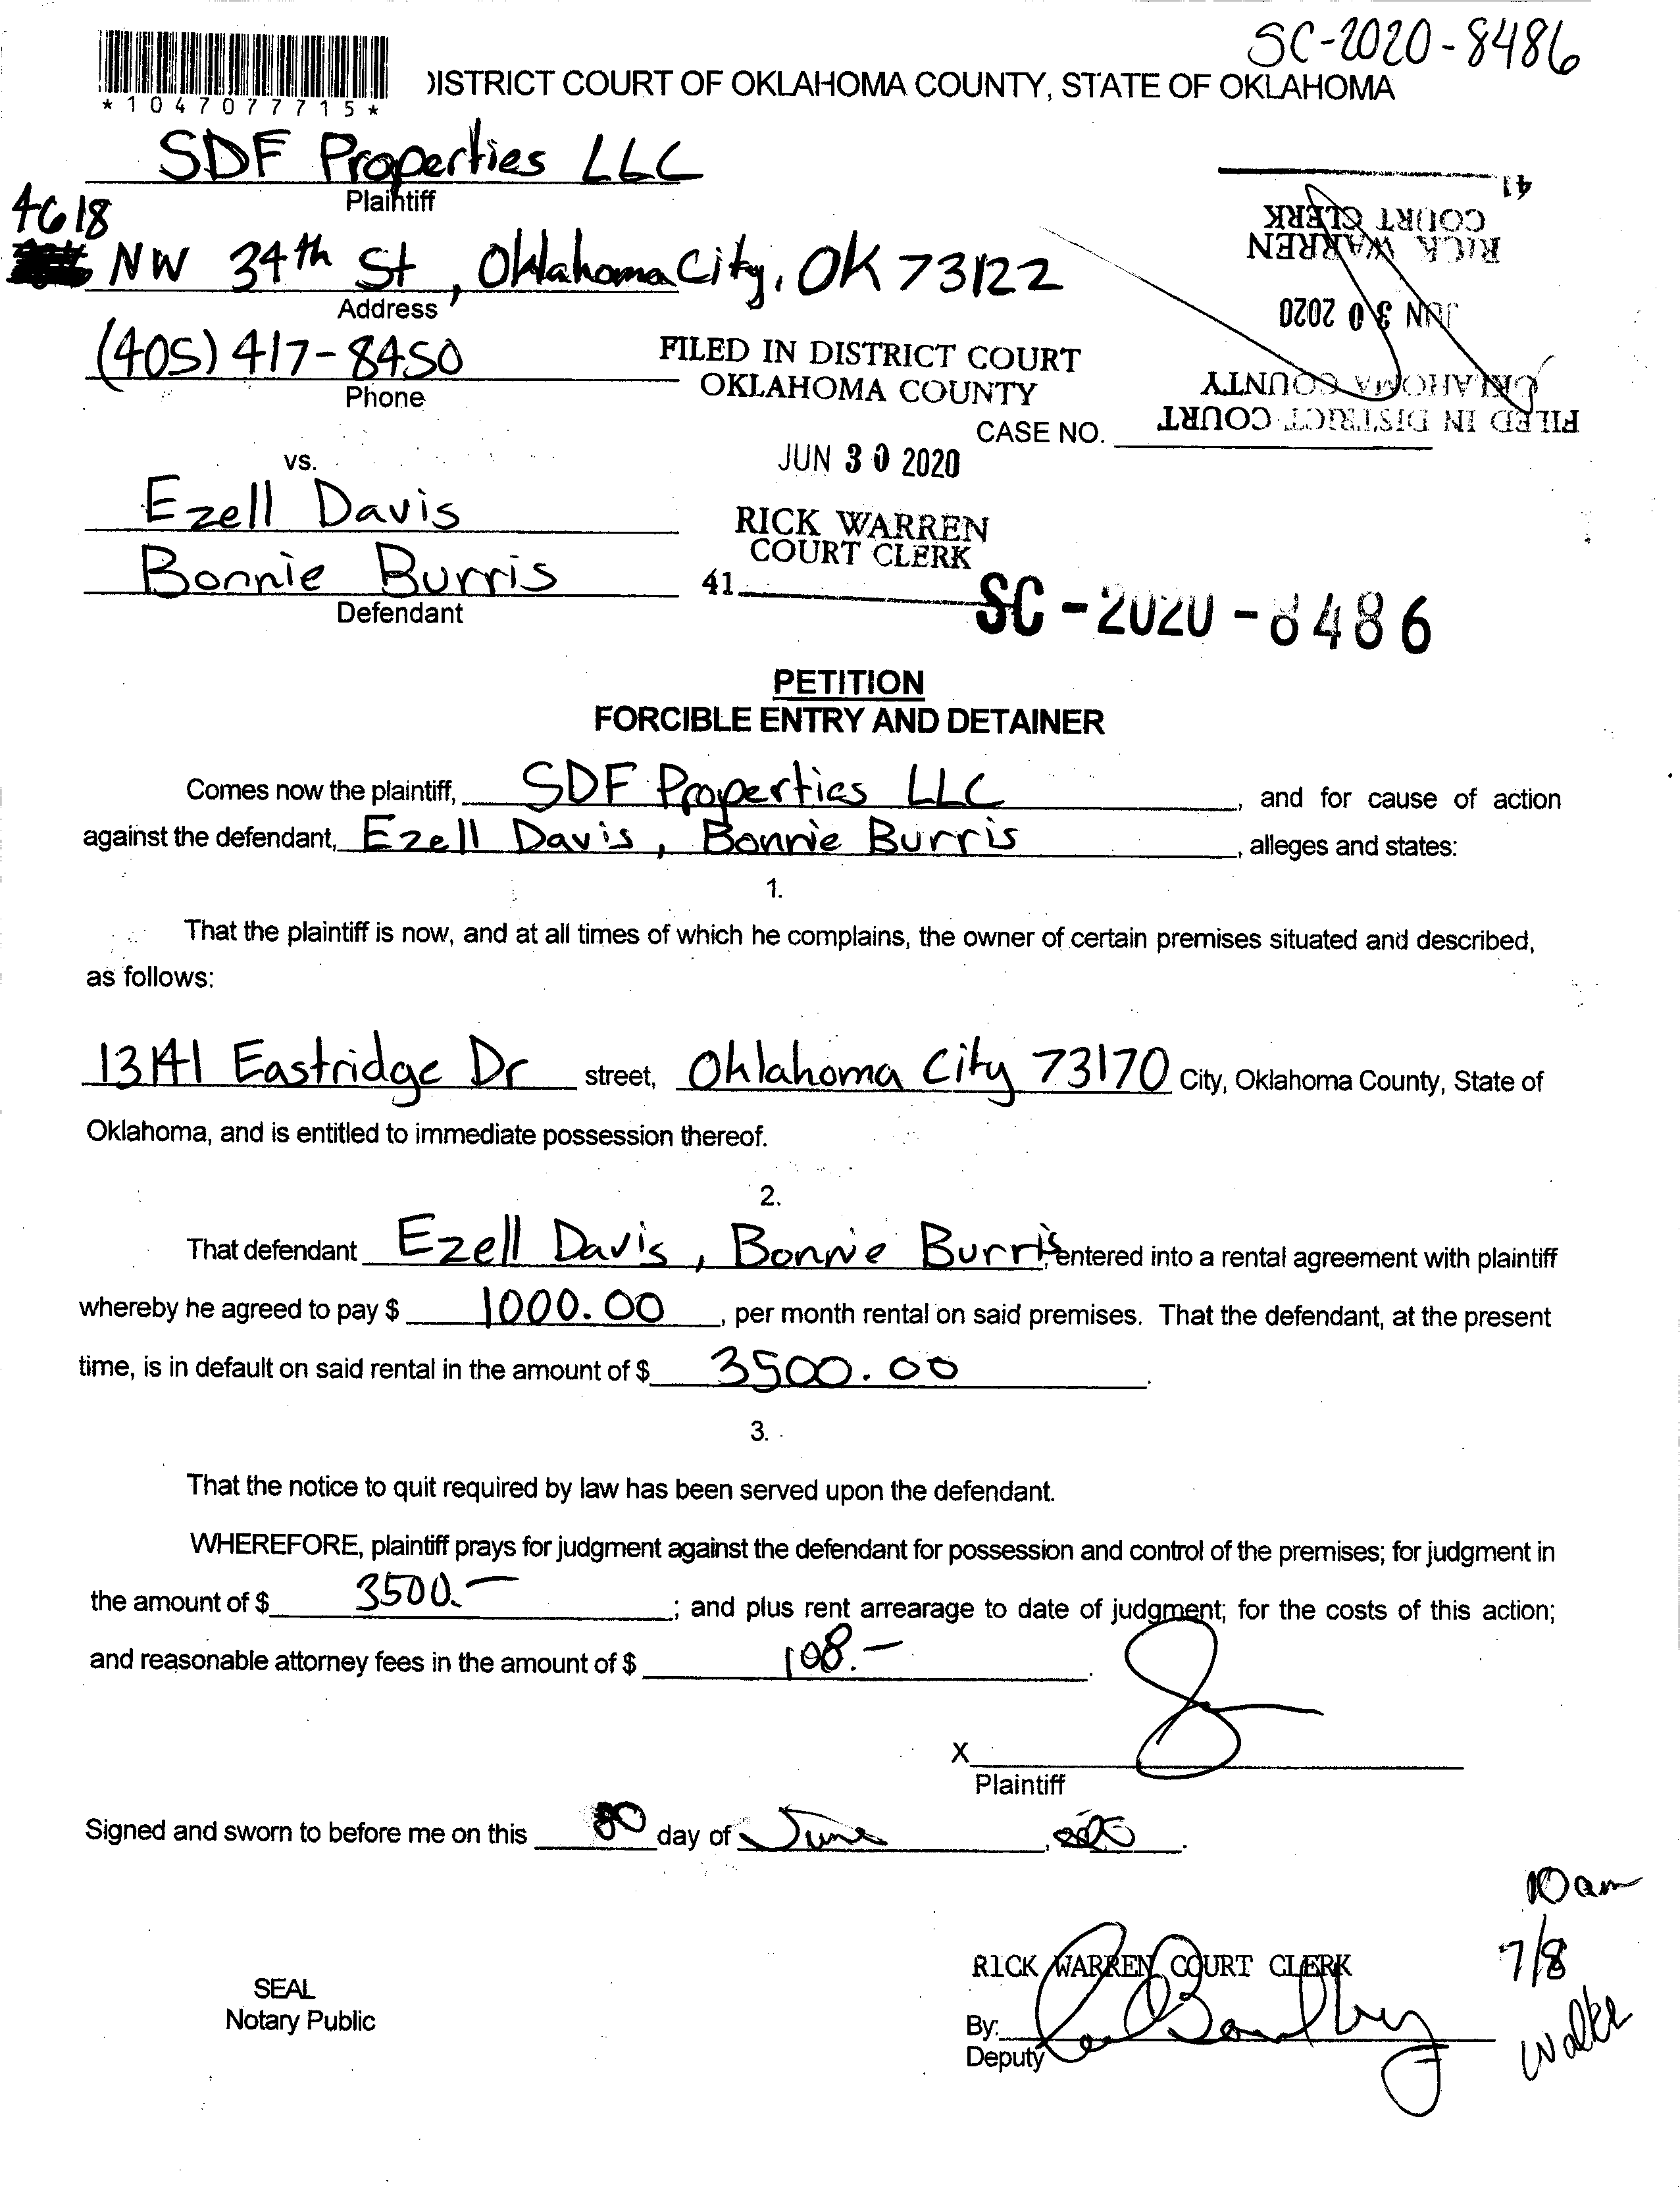 SC-2020-8486
*1047077715*
DISTRICT COURT OF OKLAHOMA COUNTY, STATE OF OKLAHOMA
SDF Properties LLC
Plaintiff
4618
NW 34th St, Oklahoma City, OK 73122
Address
(405) 417-8450
Phone
41
RICK WARREN
COURT CLERK
JUN 30 2020
FILED IN DISTRICT COURT
OKLAHOMA COUNTY
FILED IN DISTRICT COURT
OKLAHOMA COUNTY
CASE NO.
JUN 30 2020
vs.
Ezell Davis
RICK WARREN
COURT CLERK
Bonnie Burris
41
Defendant
SC-2020-8486
PETITION
FORCIBLE ENTRY AND DETAINER
Comes now the plaintiff, SDF Properties LLC, and for cause of action
against the defendant, Ezell Davis, Bonnie Burris, alleges and states:
1.
That the plaintiff is now, and at all times of which he complains, the owner of certain premises situated and described,
as follows:
13141 Eastridge Dr street, Oklahoma City 73170 City, Oklahoma County, State of
Oklahoma, and is entitled to immediate possession thereof.
2.
That defendant Ezell Davis, Bonnie Burris, entered into a rental agreement with plaintiff
whereby he agreed to pay $ 1000.00, per month rental on said premises. That the defendant, at the present
time, is in default on said rental in the amount of $ 3500.00.
3.
That the notice to quit required by law has been served upon the defendant.
WHEREFORE, plaintiff prays for judgment against the defendant for possession and control of the premises; for judgment in
the amount of $ 3500.-; and plus rent arrearage to date of judgment; for the costs of this action;
and reasonable attorney fees in the amount of $ 108.-.
X
Plaintiff
Signed and sworn to before me on this 30 day of June, 2020.
10am
7/8
RICK WARREN COURT CLERK
SEAL
Notary Public
By:
Deputy